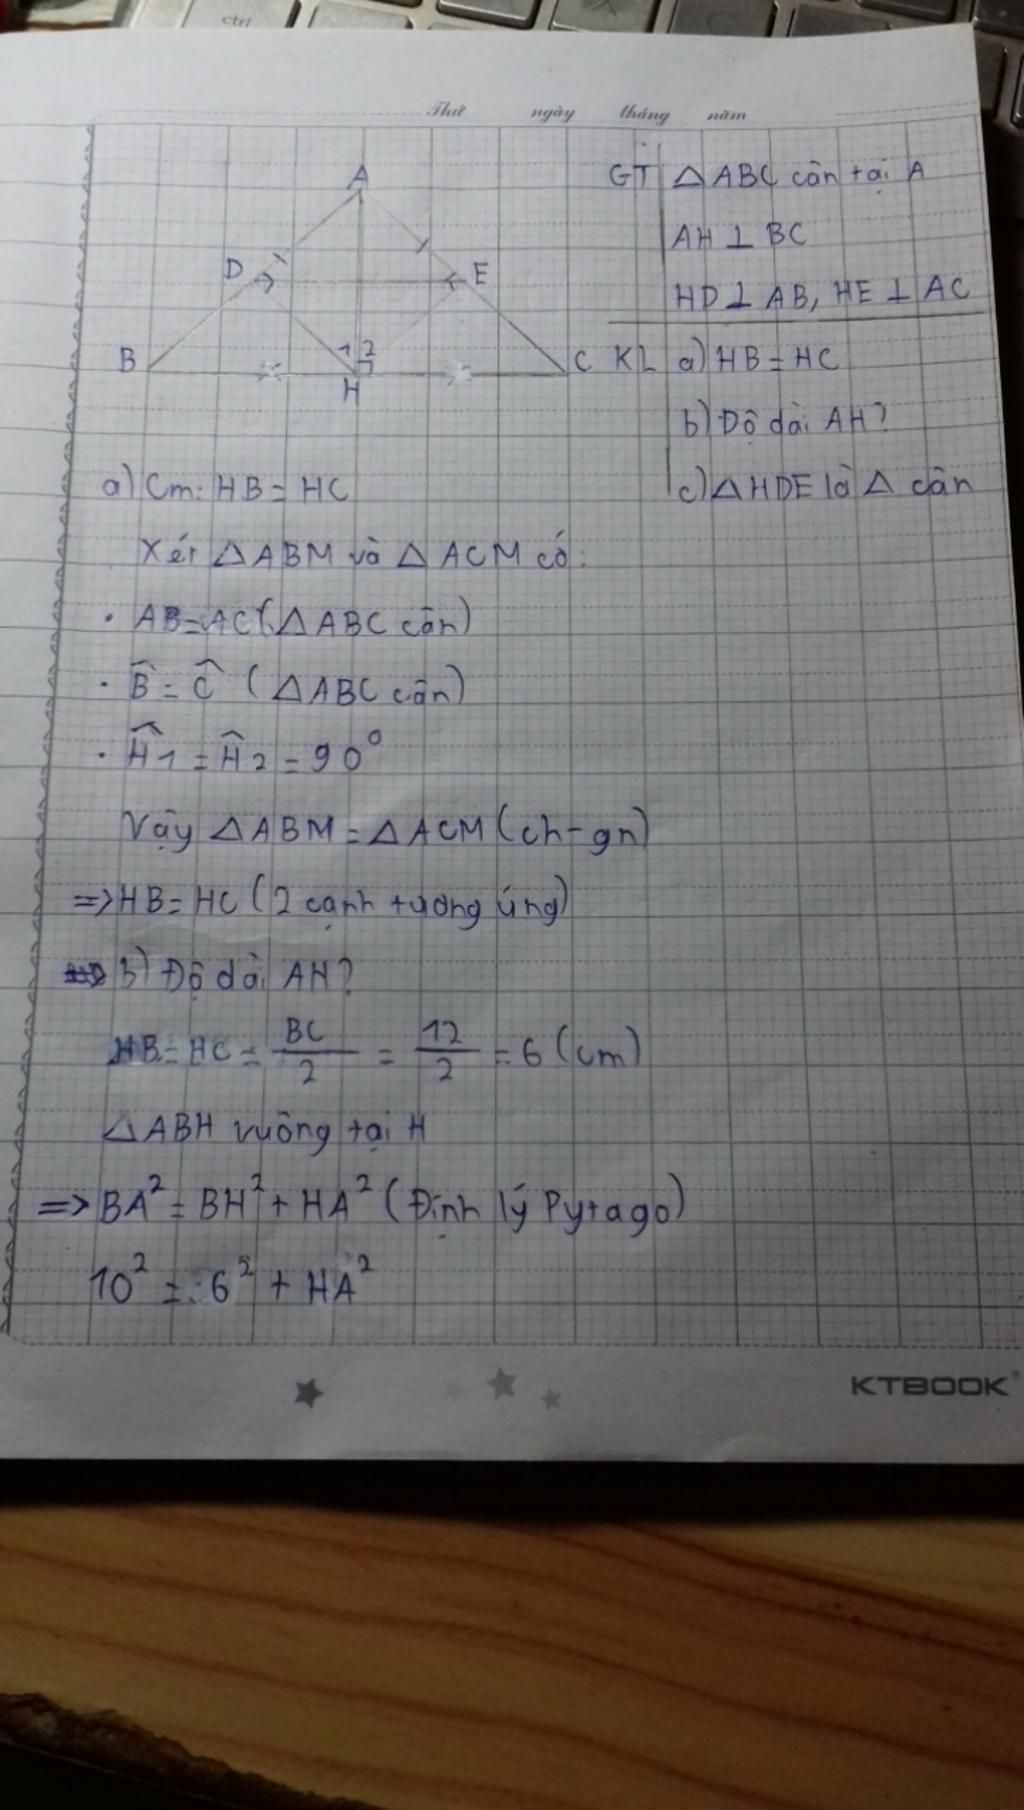 ctrl
Thứ ngày tháng năm
A
D
E
B
1 2
H
C
GT △ABC cân tại A
AH ⊥ BC
HD ⊥ AB, HE ⊥ AC
KL a) HB = HC
b) Độ dài AH?
c) △HDE là △ cân
a) Cm: HB = HC
Xét △ABM và △ACM có:
· AB = AC (△ABC cân)
· B̂ = Ĉ (△ABC cân)
· Ĥ1 = Ĥ2 = 90°
Vậy △ABM = △ACM (ch-gn)
=> HB = HC (2 cạnh tương ứng)
b) Độ dài AH?
HB = HC = BC/2 = 12/2 = 6 (cm)
△ABH vuông tại H
=> BA² = BH² + HA² (Định lý Pytago)
10² = 6² + HA²
KTBOOK